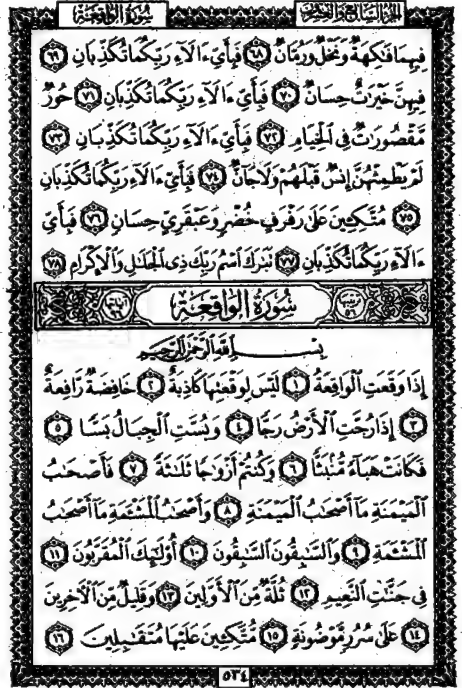 الجزء السابع والعشرون
سُورَةُ الوَاقِعَة
فِيهِمَا فَٰكِهَةٌ وَنَخْلٌ وَرُمَّانٌ ٦٨ فَبِأَيِّ ءَالَآءِ رَبِّكُمَا تُكَذِّبَانِ ٦٩
فِيهِنَّ خَيْرَٰتٌ حِسَانٌ ٧٠ فَبِأَيِّ ءَالَآءِ رَبِّكُمَا تُكَذِّبَانِ ٧١ حُورٌ
مَّقْصُورَٰتٌ فِى ٱلْخِيَامِ ٧٢ فَبِأَيِّ ءَالَآءِ رَبِّكُمَا تُكَذِّبَانِ ٧٣
لَمْ يَطْمِثْهُنَّ إِنسٌ قَبْلَهُمْ وَلَا جَآنٌّ ٧٤ فَبِأَيِّ ءَالَآءِ رَبِّكُمَا تُكَذِّبَانِ
٧٥ مُتَّكِـِٔينَ عَلَىٰ رَفْرَفٍ خُضْرٍ وَعَبْقَرِىٍّ حِسَانٍ ٧٦ فَبِأَيِّ
ءَالَآءِ رَبِّكُمَا تُكَذِّبَانِ ٧٧ تَبَٰرَكَ ٱسْمُ رَبِّكَ ذِى ٱلْجَلَٰلِ وَٱلْإِكْرَامِ ٧٨
ترتيبها ٥٦ سُورَةُ الوَاقِعَة آياتها ٩٦
بِسْمِ ٱللَّهِ ٱلرَّحْمَٰنِ ٱلرَّحِيمِ
إِذَا وَقَعَتِ ٱلْوَاقِعَةُ ١ لَيْسَ لِوَقْعَتِهَا كَاذِبَةٌ ٢ خَافِضَةٌ رَّافِعَةٌ
٣ إِذَا رُجَّتِ ٱلْأَرْضُ رَجًّا ٤ وَبُسَّتِ ٱلْجِبَالُ بَسًّا ٥
فَكَانَتْ هَبَآءً مُّنۢبَثًّا ٦ وَكُنتُمْ أَزْوَٰجًا ثَلَٰثَةً ٧ فَأَصْحَٰبُ
ٱلْمَيْمَنَةِ مَآ أَصْحَٰبُ ٱلْمَيْمَنَةِ ٨ وَأَصْحَٰبُ ٱلْمَشْـَٔمَةِ مَآ أَصْحَٰبُ
ٱلْمَشْـَٔمَةِ ٩ وَٱلسَّٰبِقُونَ ٱلسَّٰبِقُونَ ١٠ أُو۟لَٰٓئِكَ ٱلْمُقَرَّبُونَ ١١
فِى جَنَّٰتِ ٱلنَّعِيمِ ١٢ ثُلَّةٌ مِّنَ ٱلْأَوَّلِينَ ١٣ وَقَلِيلٌ مِّنَ ٱلْءَاخِرِينَ
١٤ عَلَىٰ سُرُرٍ مَّوْضُونَةٍ ١٥ مُّتَّكِـِٔينَ عَلَيْهَا مُتَقَٰبِلِينَ ١٦
٥٣٤